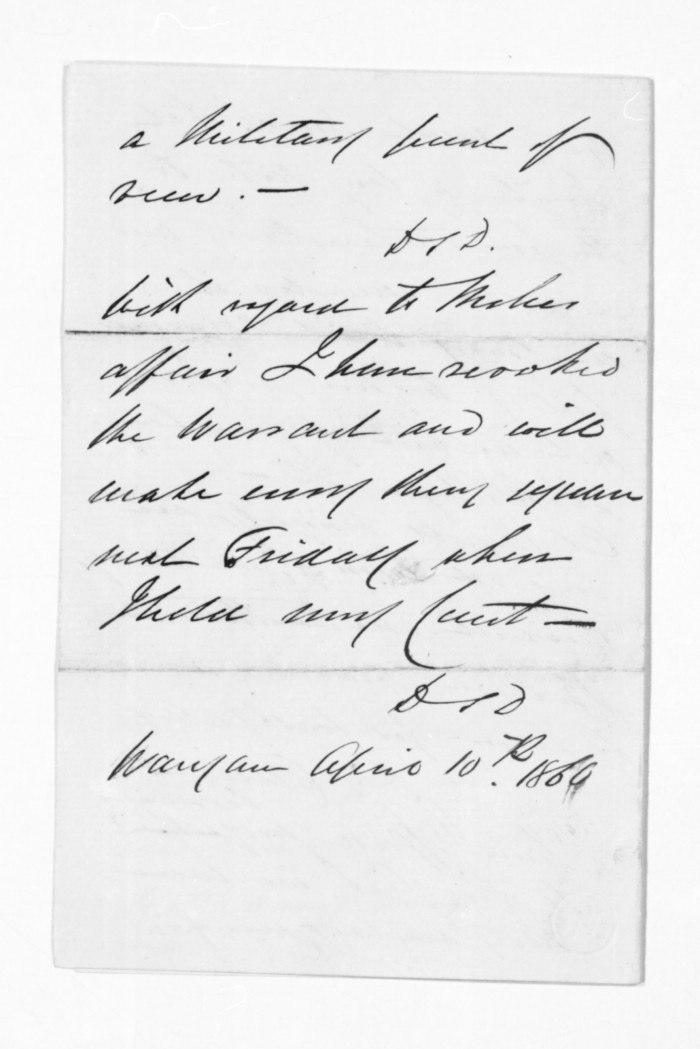 a Military point of
view. —
D S D.
With regard to Mokes
affair I have revoked
the Warrant and will
make every thing square
next Friday when
I hold my Court —
D S D
April 10th. 1860